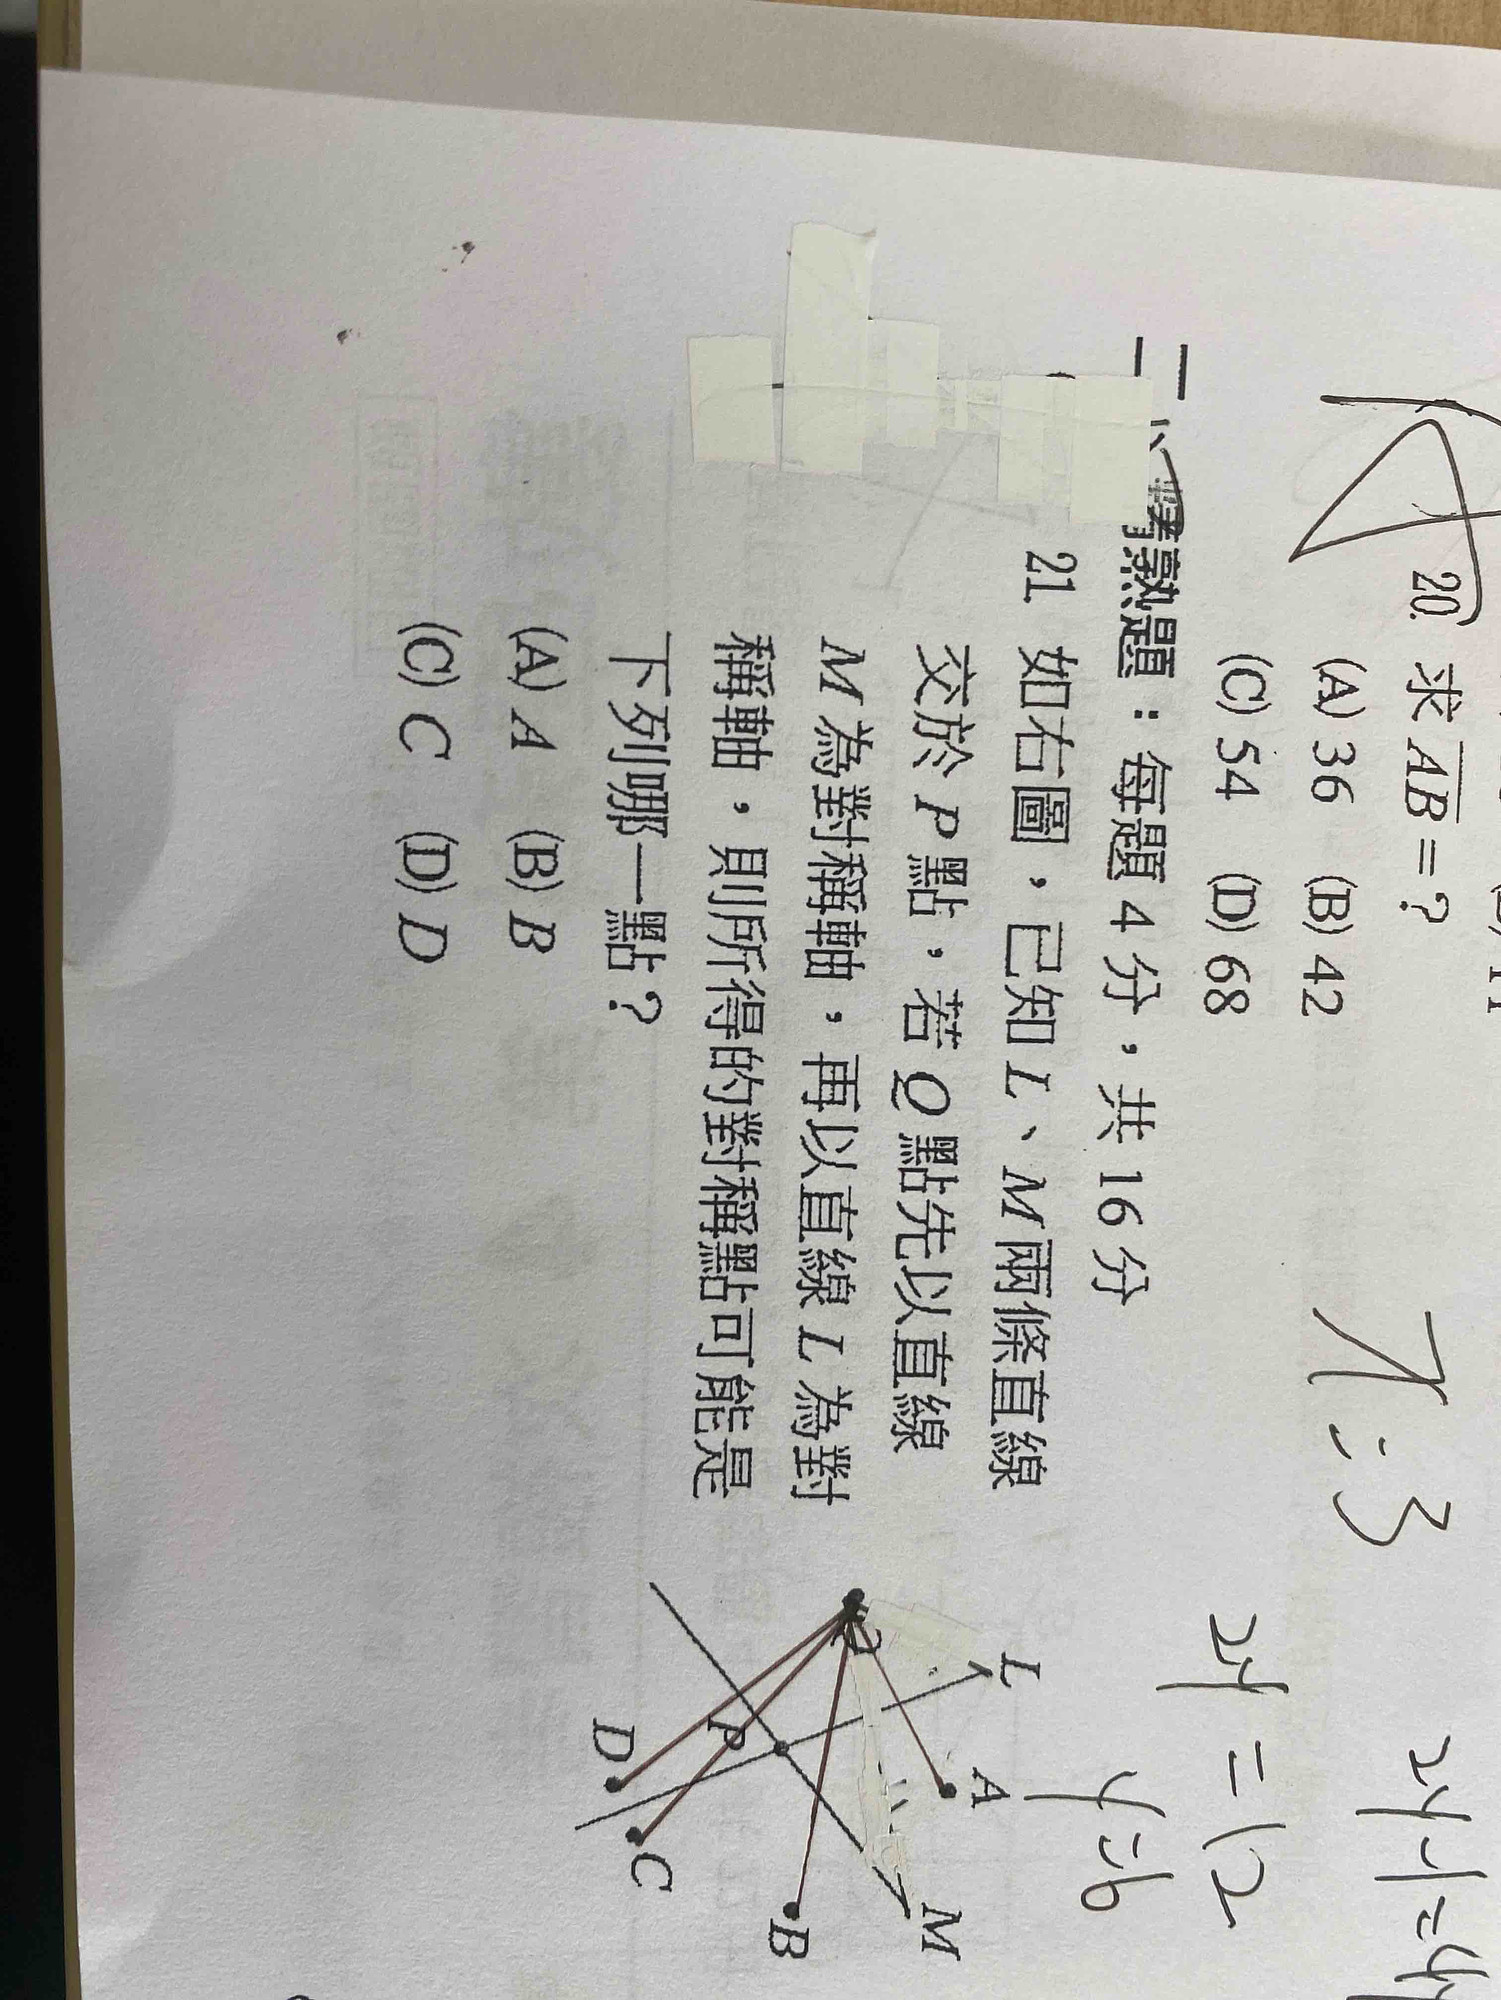 20. 求 AB = ?
(A) 36 (B) 42
(C) 54 (D) 68
二、精熟題：每題 4 分，共 16 分
21 如右圖，已知 L、M 兩條直線
交於 P 點，若 Q 點先以直線
M 為對稱軸，再以直線 L 為對
稱軸，則所得的對稱點可能是
下列哪一點？
(A) A (B) B
(C) C (D) D
L
A
M
Q
P
B
D
C
2y = 12
y = 6